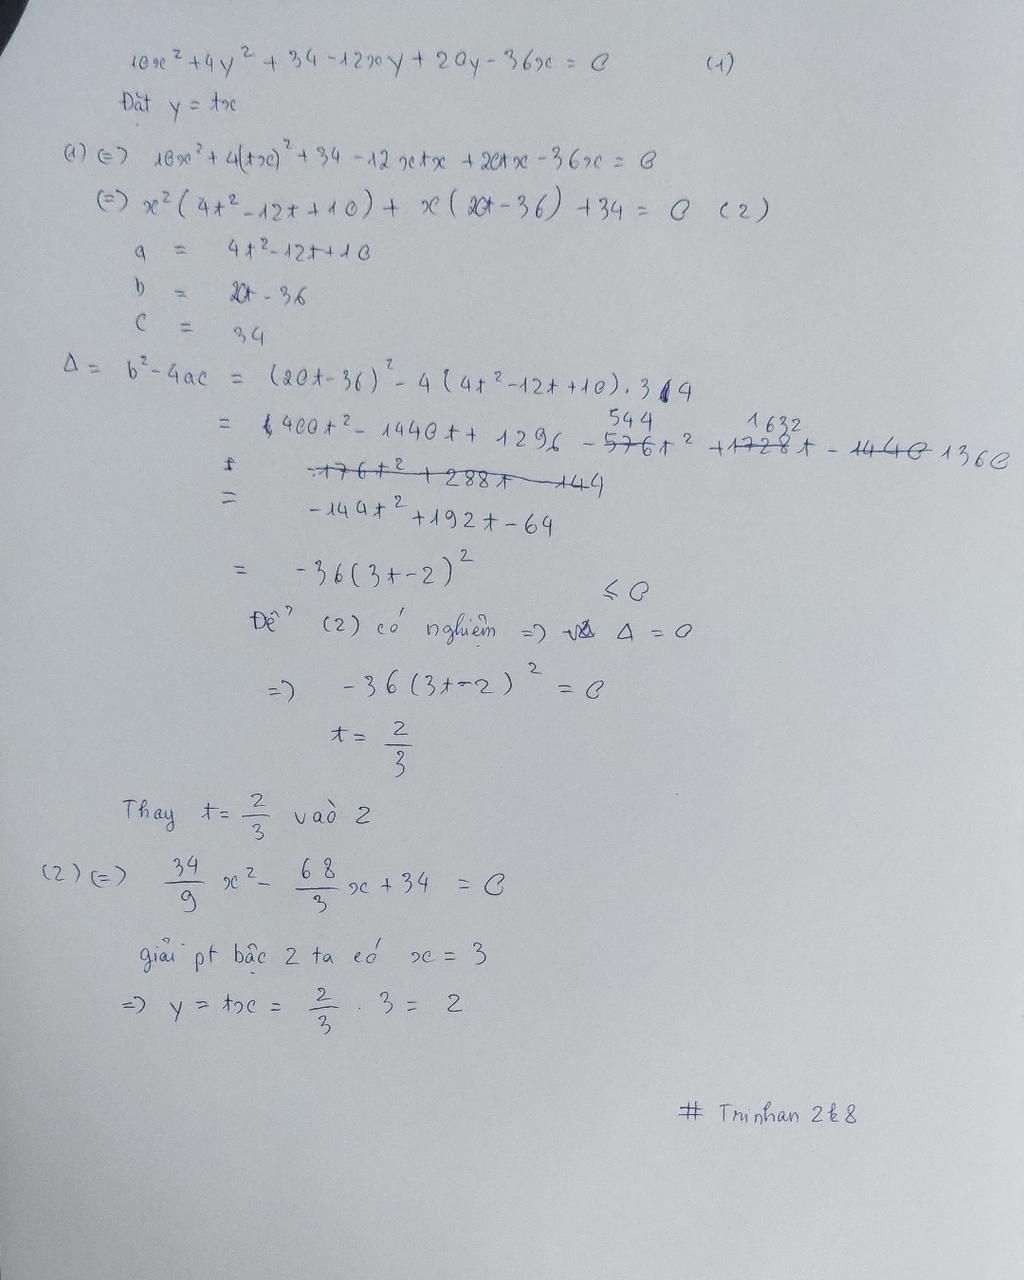 10x² + 4y² + 34 - 12xy + 20y - 36x = 0 (1)
Đặt y = tx
(1) (=) 10x² + 4(tx)² + 34 - 12xtx + 20tx - 36x = 0
(=) x²(4t² - 12t + 10) + x(20t - 36) + 34 = 0 (2)
a = 4t² - 12t + 10
b = 20t - 36
c = 34
Δ = b² - 4ac = (20t - 36)² - 4(4t² - 12t + 10).34
544 1632
= 400t² - 1440t + 1296 - 576t² + 1728t - 1440 1360
-176t² + 288t - 144
= -144t² + 192t - 64
= -36(3t - 2)² ≤ 0
Để (2) có nghiệm => Δ = 0
=> -36(3t - 2)² = 0
t = 2/3
Thay t = 2/3 vào 2
(2) (=) 34/9 x² - 68/3 x + 34 = 0
giải pt bậc 2 ta có x = 3
=> y = tx = 2/3 . 3 = 2
# Trinhan 2k8